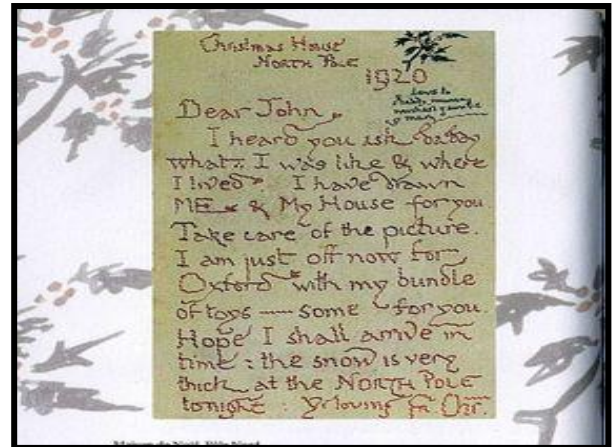 Christmas House
North Pole
1920
Love to
Daddy, mummy
michael & auntie
& mary
Dear John
I heard you ask daddy
what I was like & where
I lived. I have drawn
ME & My House for you.
Take care of the picture.
I am just off now for
Oxford with my bundle
of toys — some for you.
Hope I shall arrive in
time : the snow is very
thick at the NORTH POLE
tonight : Yr loving Fr. Chr.
Maison de Noël, Pôle Nord